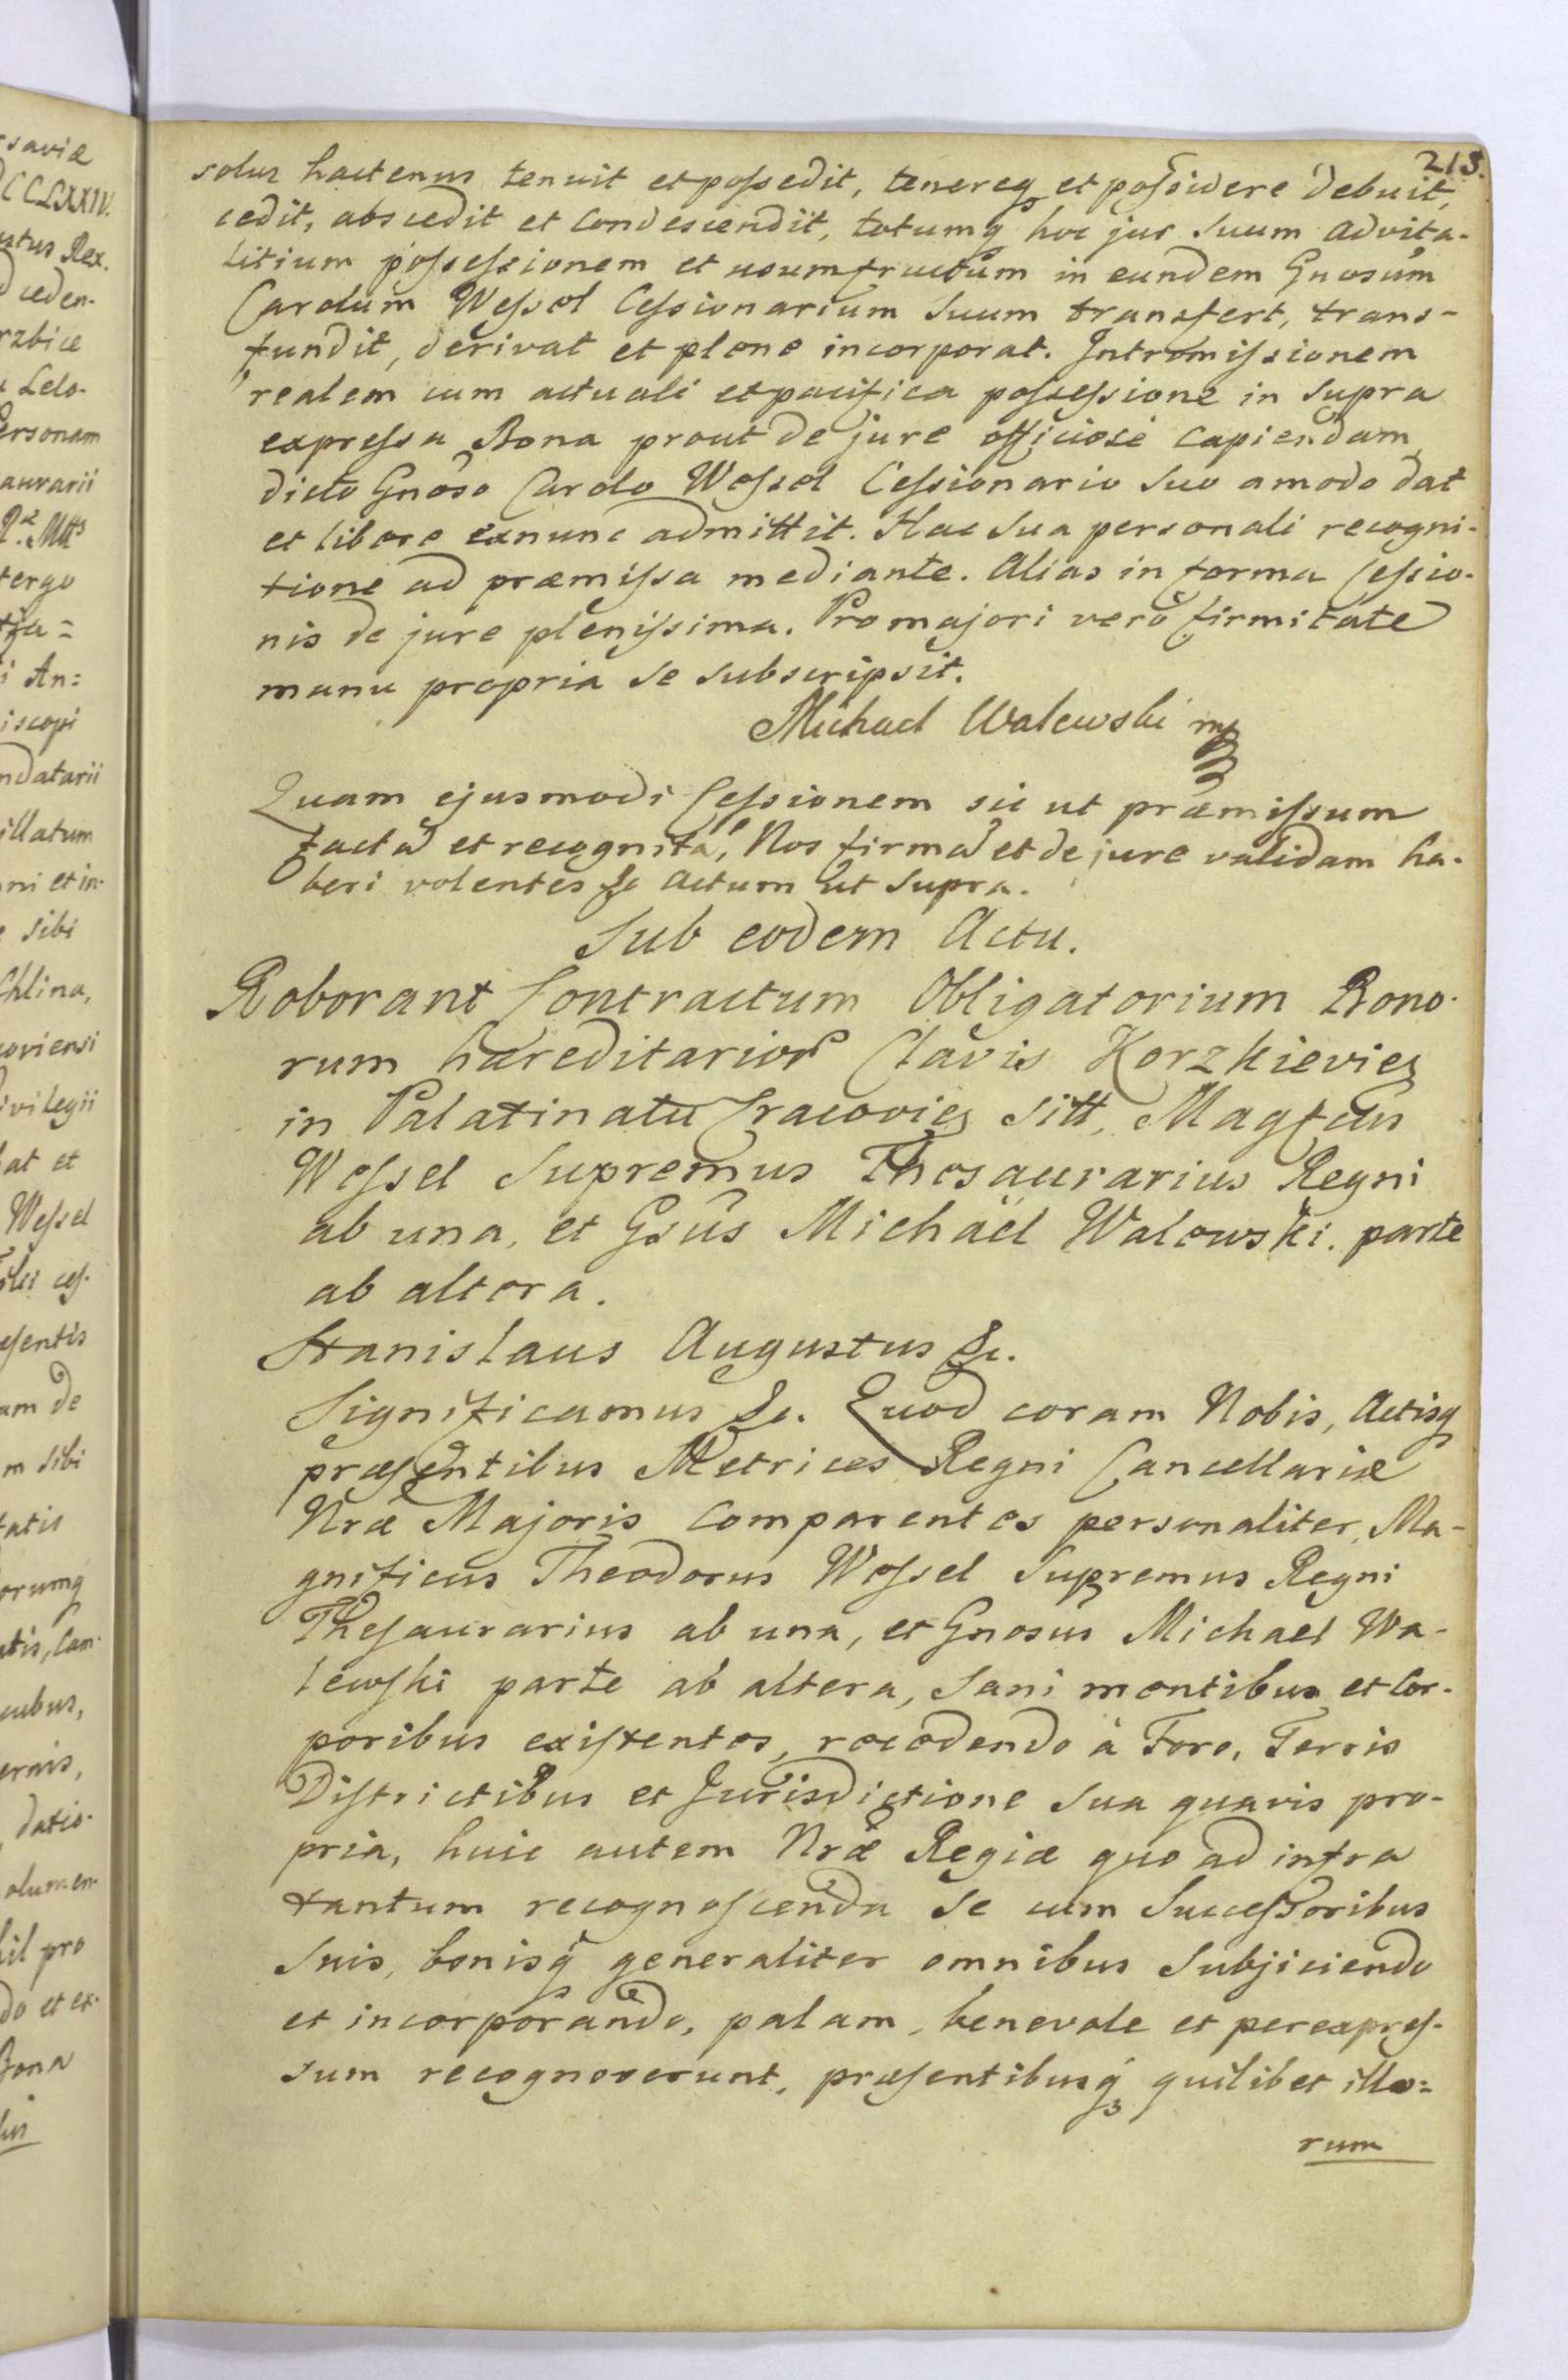 213.
solus hactenus tenuit et possedit, tenereq3 et possidere debuit,
cedit, abscedit et condescendit, totumq hoc jus suum advita-
litium possessionem et usumfructum in eundem Gnosum
Carolum Wessel Cessionarium suum transfert, trans-
fundit, derivat et plene incorporat. Intromissionem
realem cum actuali et pacifica possessione in supra
expressa Bona prout de jure officiose capiendam
dicto Gnoso Carolo Wessel Cessionario suo amodo dat
et libere exnunc admittit. Hac sua personali recogni-
tione ad præmissa mediante. Alias in forma Cessio-
nis de jure plenissima. Pro majori verò firmitate
manu propria se subscripsit.
Michael Walewski mp
Quam ejusmodi Cessionem sic ut præmissum
factā et recognitā, Nos firmā et de jure validam ha-
beri volentes &c Actum ut supra.
Sub eodem Actu.
Roborant Contractum Obligatorium Bono-
rum hæreditarior Clavis Korzkieviez
in Palatinatu Cracovies sitt, Magfcus
Wessel Supremus Thesaurarius Regni
ab una, et Gsus Michaël Walewski parte
ab altera.
Stanislaus Augustus &c.
Significamus &c. Quod coram Nobis, Actisq
præsentibus Metrices Regni Cancellariæ
Nræ Majoris comparentes personaliter, Ma-
gnificus Theodorus Wessel Supremus Regni
Thesaurarius ab una, et Gnosus Michael Wa-
lewski parte ab altera, sani mentibus et Cor-
poribus existentes, recedendo à Foro, Terris
Districtibus et Jurisdictione sua quavis pro-
pria, huic autem Nræ Regiæ quo ad infra
tantum recognoscenda se cum Successoribus
suis, bonisq generaliter omnibus subjiciendo
et incorporando, palam, benevole et perexpres-
sum recognoverunt, præsentibusq3 quilibet illo=
rum